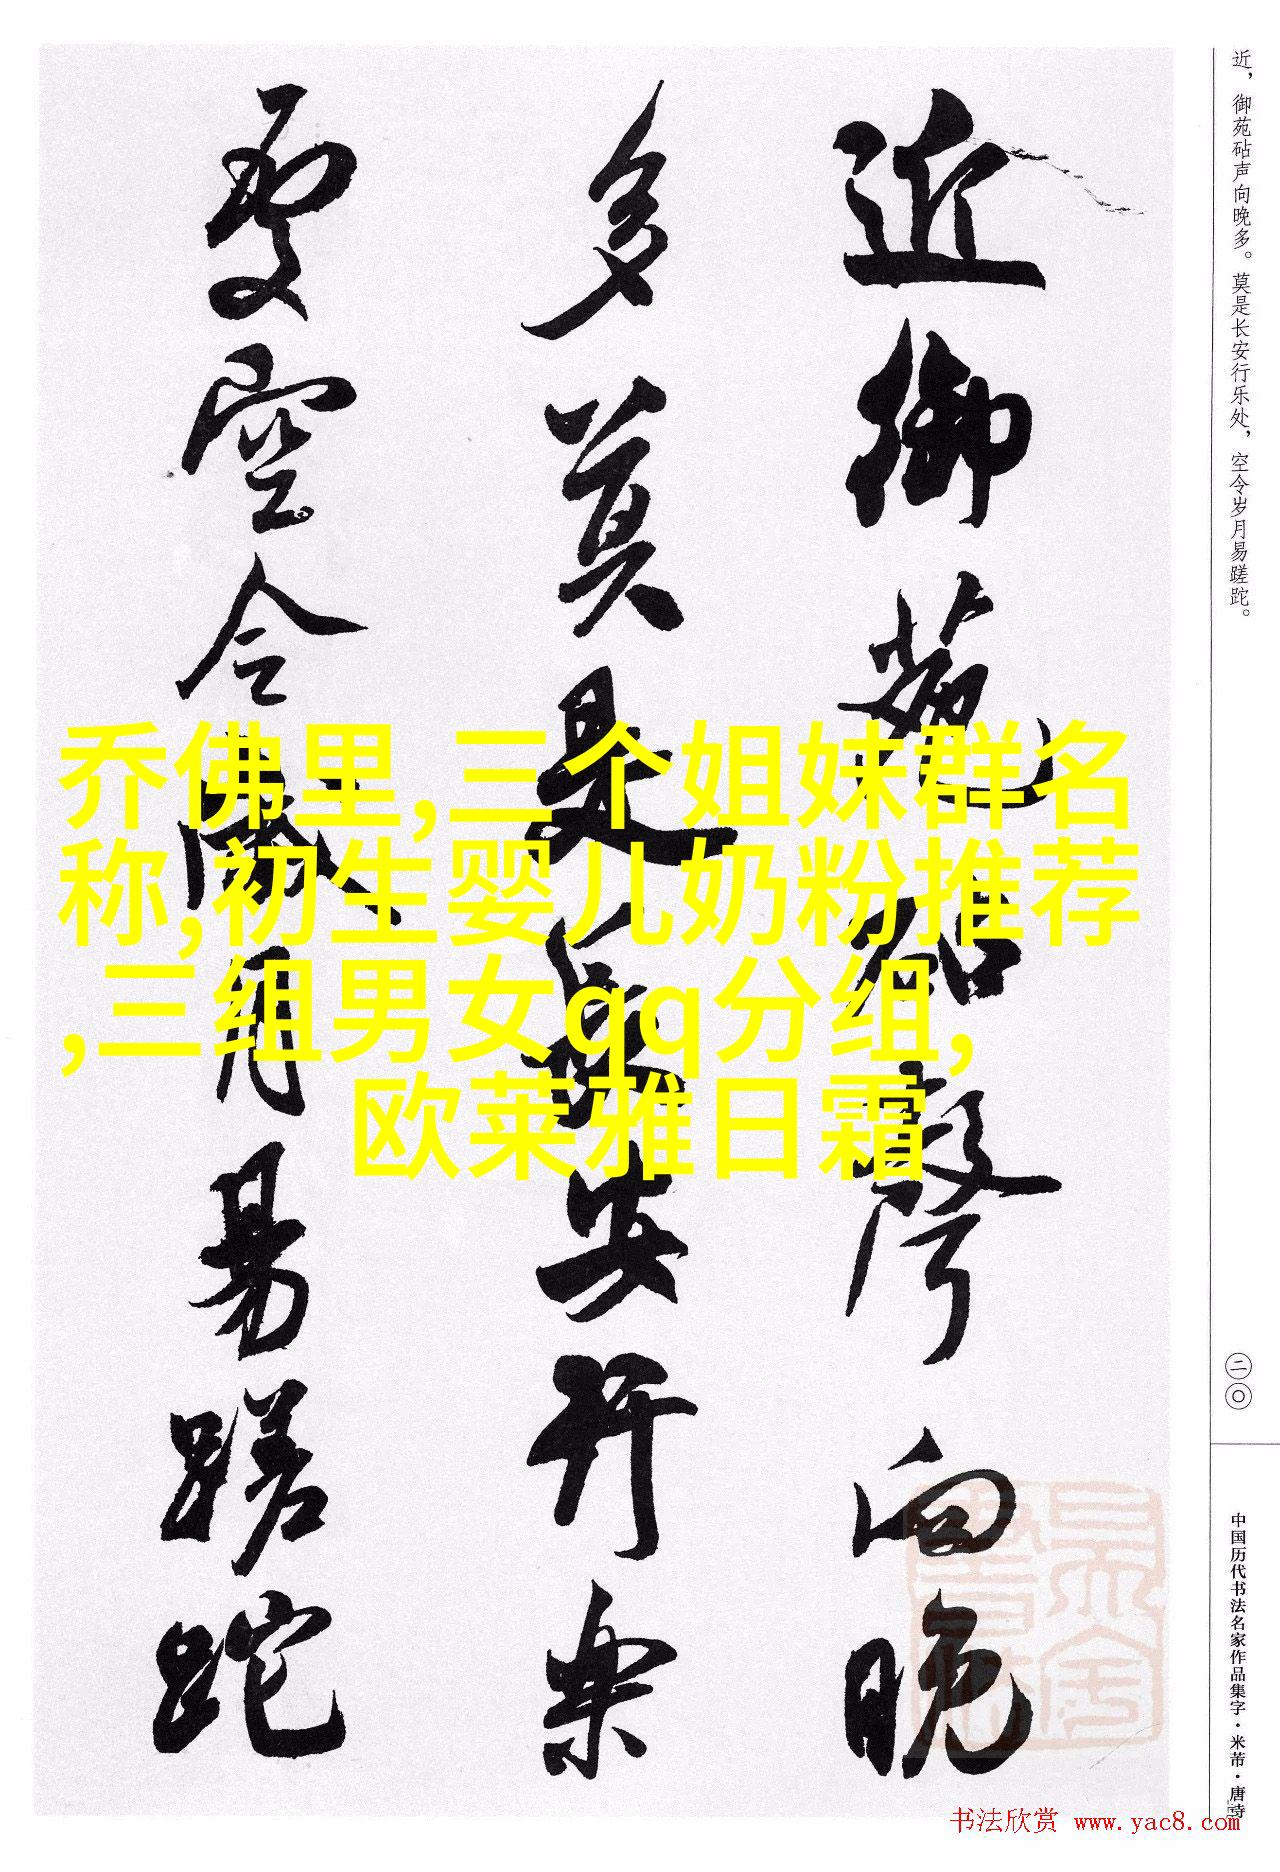 近，御苑砧声向晚多。莫是长安行乐处，空令岁月易蹉跎。
近御苑砧聲向晚
多莫是長安行樂
處空令歲月易蹉跎
乔佛里,三个姐妹群名
称,初生婴儿奶粉推荐
,三组男女qq分组,
欧莱雅日霜
二〇
中国历代书法名家作品集字·米芾·唐诗
书法欣赏 www.yac8.com